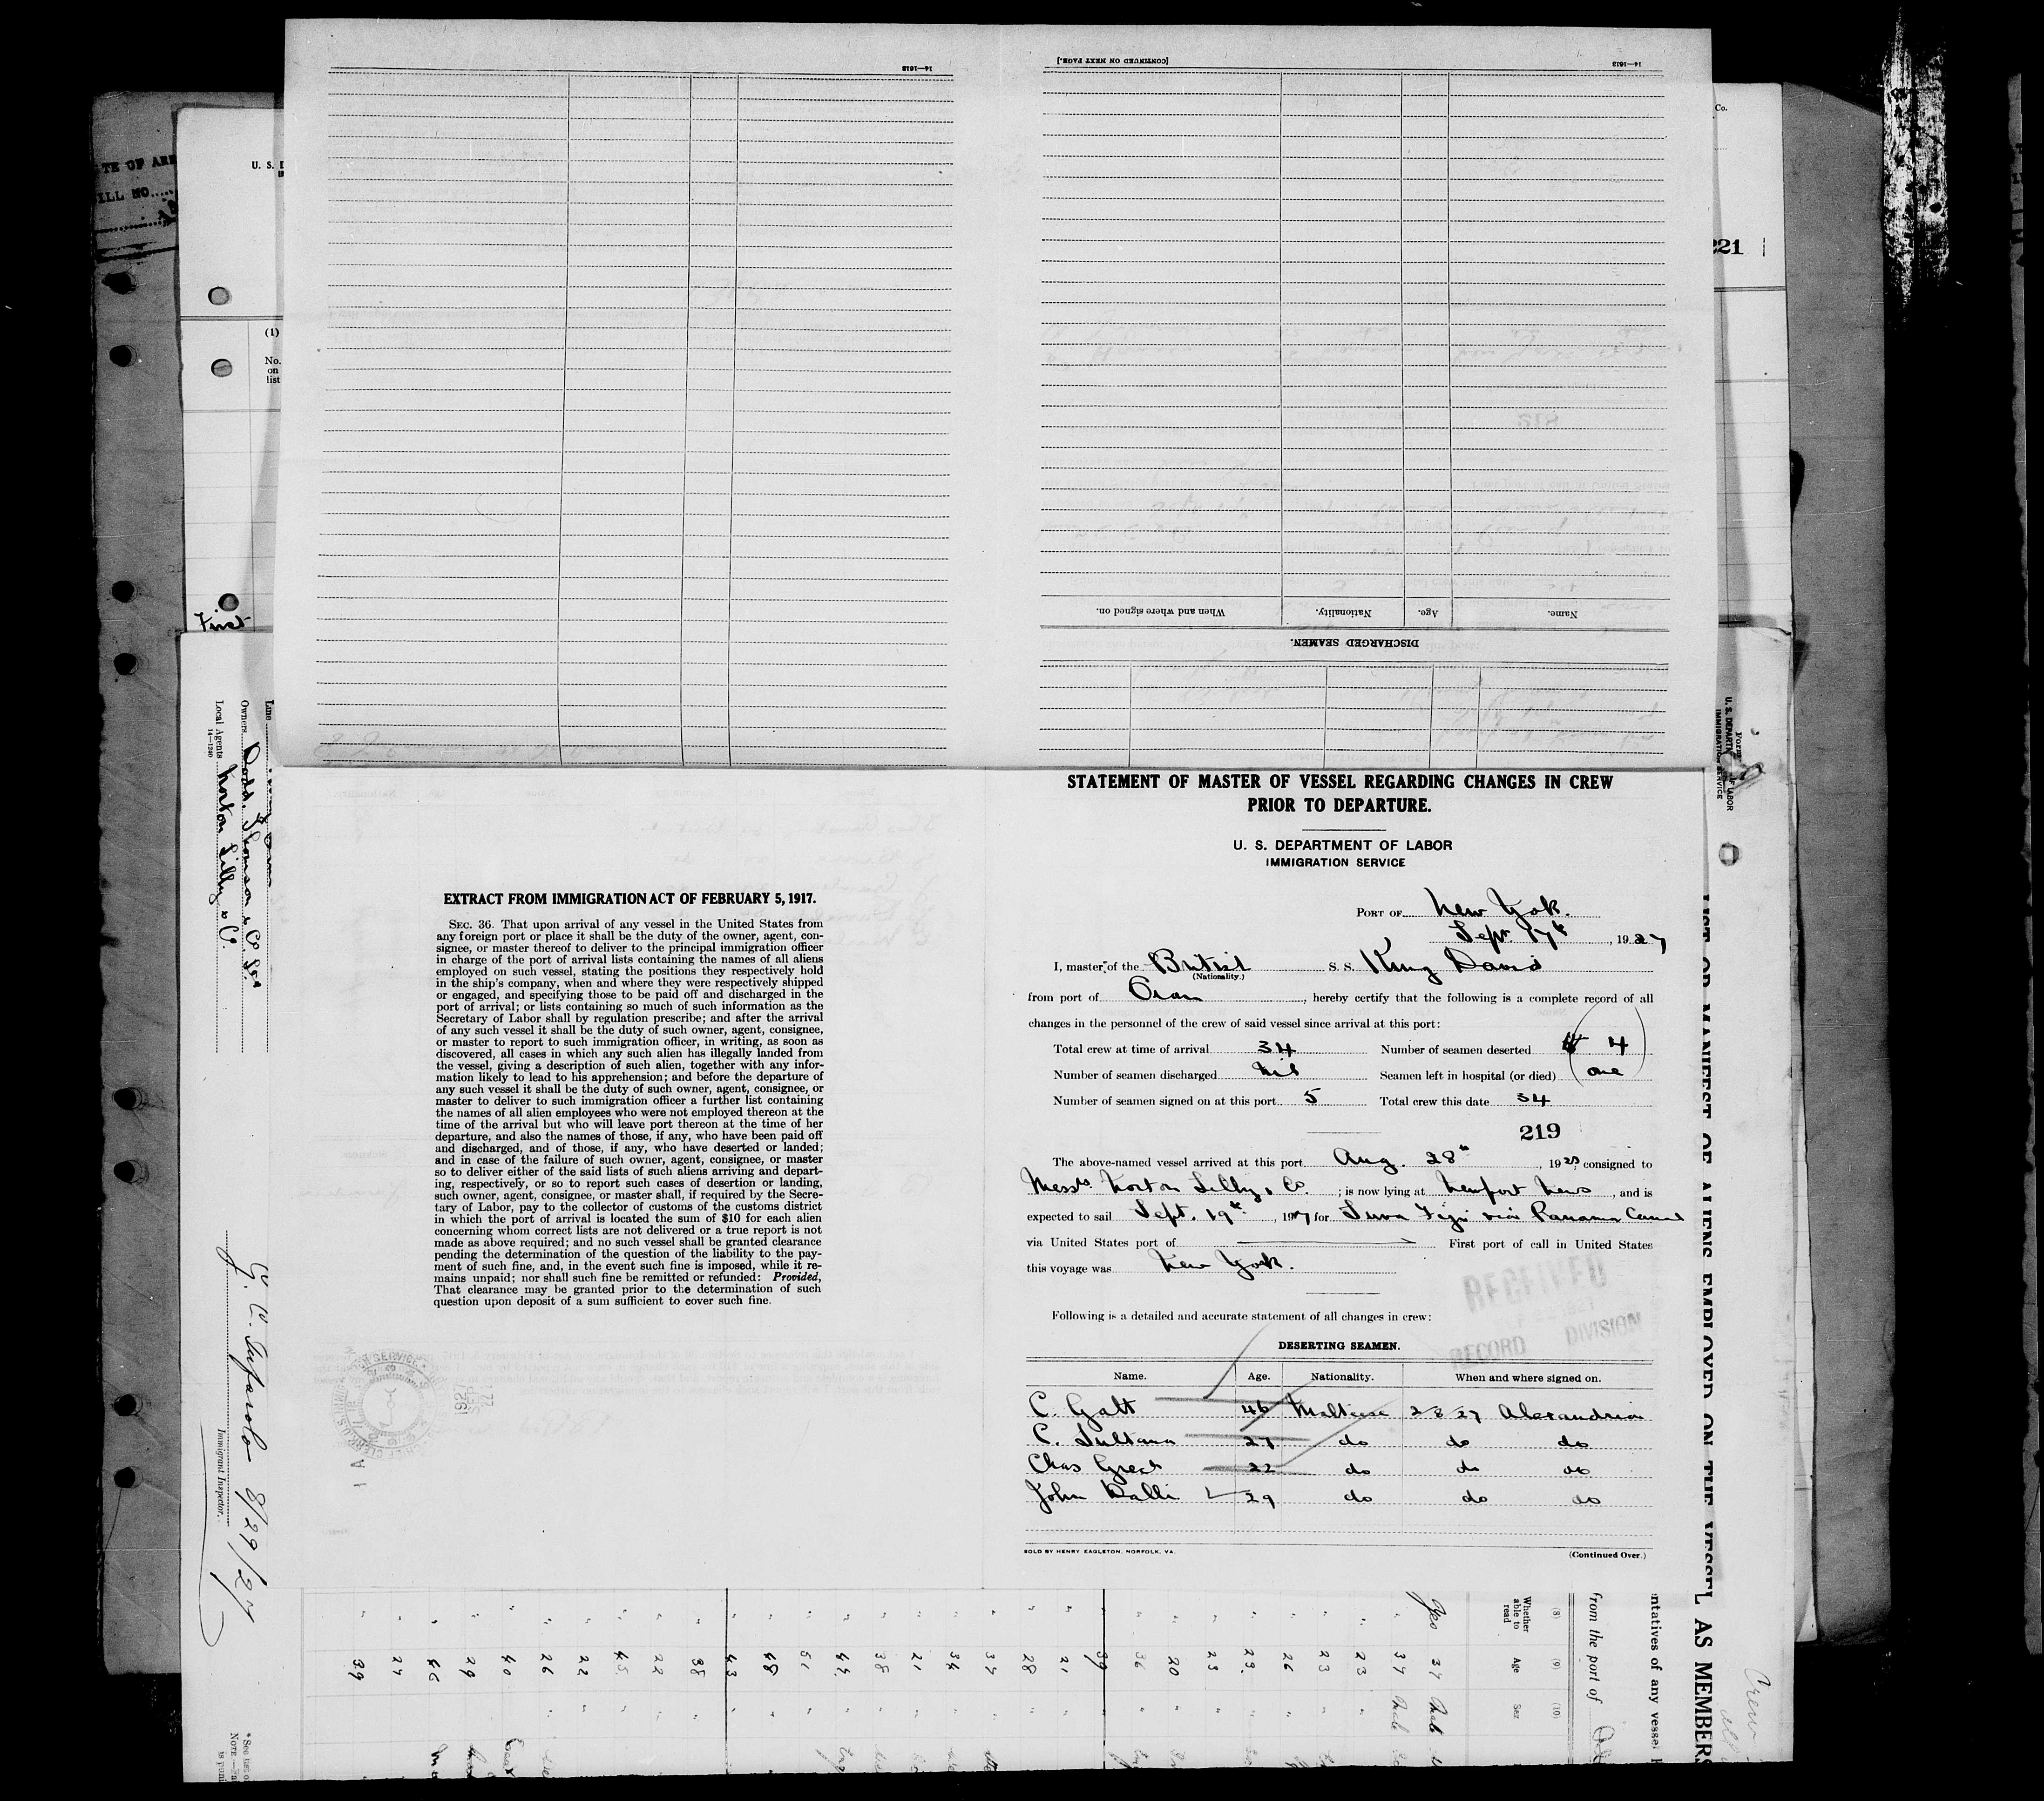 14—1613
[CONTINUED ON NEXT PAGE.]
14—1613
When and where signed on.
Nationality.
Age.
Name.
DISCHARGED SEAMEN.
TE OF ARR
ILL NO.....
U. S. D
(1)
No.
on
list
First
Co.
221
Line
Owners Dodd, Thomson & Co Ltd
Local Agents Norton Lilly & Co
14—1240
8/29/27
Immigrant Inspector.
EXTRACT FROM IMMIGRATION ACT OF FEBRUARY 5, 1917.
SEC. 36. That upon arrival of any vessel in the United States from
any foreign port or place it shall be the duty of the owner, agent, con-
signee, or master thereof to deliver to the principal immigration officer
in charge of the port of arrival lists containing the names of all aliens
employed on such vessel, stating the positions they respectively hold
in the ship's company, when and where they were respectively shipped
or engaged, and specifying those to be paid off and discharged in the
port of arrival; or lists containing so much of such information as the
Secretary of Labor shall by regulation prescribe; and after the arrival
of any such vessel it shall be the duty of such owner, agent, consignee,
or master to report to such immigration officer, in writing, as soon as
discovered, all cases in which any such alien has illegally landed from
the vessel, giving a description of such alien, together with any infor-
mation likely to lead to his apprehension; and before the departure of
any such vessel it shall be the duty of such owner, agent, consignee, or
master to deliver to such immigration officer a further list containing
the names of all alien employees who were not employed thereon at the
time of the arrival but who will leave port thereon at the time of her
departure, and also the names of those, if any, who have been paid off
and discharged, and of those, if any, who have deserted or landed;
and in case of the failure of such owner, agent, consignee, or master
so to deliver either of the said lists of such aliens arriving and depart-
ing, respectively, or so to report such cases of desertion or landing,
such owner, agent, consignee, or master shall, if required by the Secre-
tary of Labor, pay to the collector of customs of the customs district
in which the port of arrival is located the sum of $10 for each alien
concerning whom correct lists are not delivered or a true report is not
made as above required; and no such vessel shall be granted clearance
pending the determination of the question of the liability to the pay-
ment of such fine, and, in the event such fine is imposed, while it re-
mains unpaid; nor shall such fine be remitted or refunded: Provided,
That clearance may be granted prior to the determination of such
question upon deposit of a sum sufficient to cover such fine.
1927
SEP
22
STATEMENT OF MASTER OF VESSEL REGARDING CHANGES IN CREW
PRIOR TO DEPARTURE.
U. S. DEPARTMENT OF LABOR
IMMIGRATION SERVICE
PORT OF New York.
Sept. 17th, 1927
I, master of the British S. S. King David
(Nationality.)
from port of Oran, hereby certify that the following is a complete record of all
changes in the personnel of the crew of said vessel since arrival at this port:
Total crew at time of arrival 34 Number of seamen deserted 4
Number of seamen discharged Nil Seamen left in hospital (or died) one
Number of seamen signed on at this port 5 Total crew this date 34
219
The above-named vessel arrived at this port Aug. 28th, 19 consigned to
Messrs Norton Lilly & Co.; is now lying at Newport News, and is
expected to sail Sept. 19th, 1927 for Suva Fiji via Panama Canal
via United States port of First port of call in United States
this voyage was New York.
Following is a detailed and accurate statement of all changes in crew:
RECEIVED
RECORD DIVISION
DESERTING SEAMEN.
Name. Age. Nationality. When and where signed on.
C. Galt 46 Maltese 2/8/27 Alexandria
C. Sultana 27 do do do
Chas Grech 22 do do do
John Dalli 29 do do do
SOLD BY HENRY EAGLETON, NORFOLK, VA.
(Continued Over.)
Form
U. S. DEPARTMENT OF LABOR
IMMIGRATION SERVICE
LIST OR MANIFEST OF ALIENS EMPLOYED ON THE VESSEL AS MEMBERS
ntatives of any vessel
from the port of
(8) (9) (10)
Whether able to read Age Sex
Yes 37 Male
37 Male
23
23
26
23
23
20
36
39
21
28
34
34
21
38
42
51
48
43
38
22
45
22
26
40
29
45
27
39
Crew